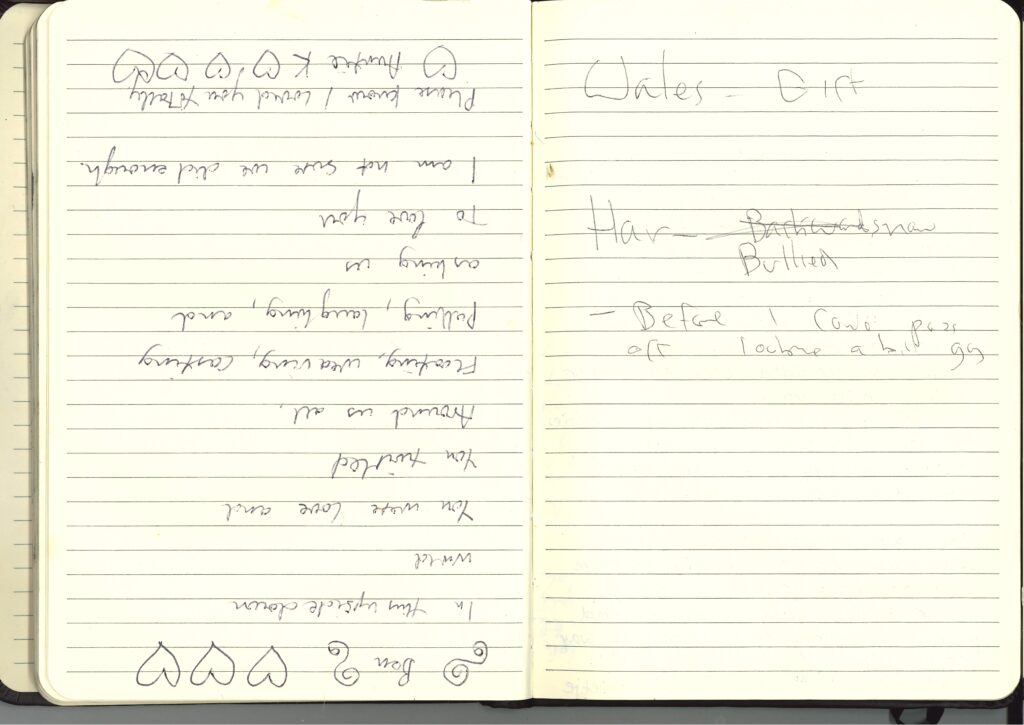 Ben
In this upside down
world
You were love and
You twirled
Around us all,
Floating, weaving, casting
Pulling, laughing, and
asking us
To love you
I am not sure we did enough.
Please know I loved you totally
Auntie K
Wales - Gift
Har - Backwards
Bullied
- Before I pass
off a bit